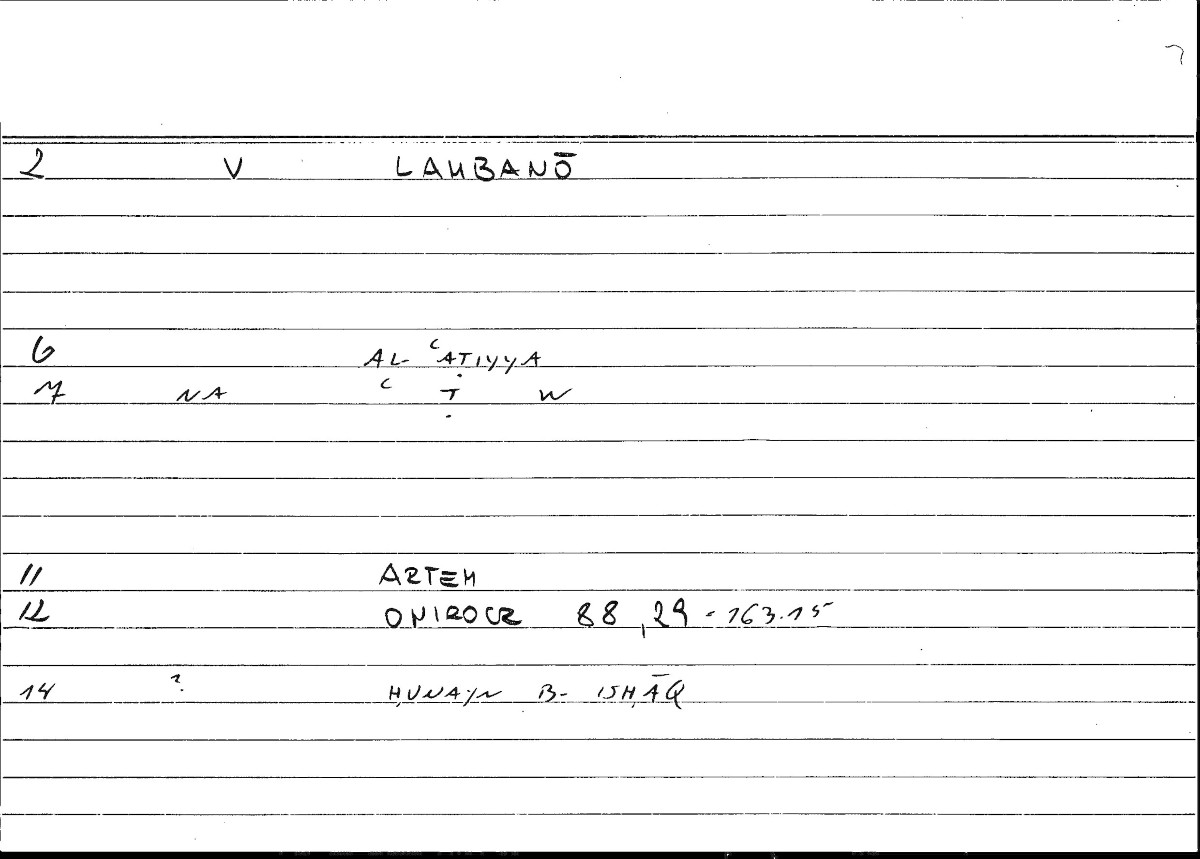 2 V LAMBANŌ
6 AL- ʿAṬIYYA
7 NA ʿ Ṭ W
11 ARTEM
12 ONIROCR 88,29 - 163.15
14 ? ḤUNAYN B- ISḤĀQ